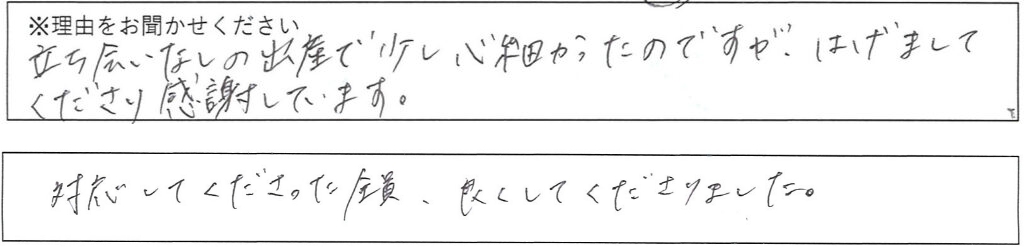 ※理由をお聞かせください
立ち会いなしの出産で少し心細かったのですが、はげまして
くださり感謝しています。
対応してくださった全員、良くしてくださりました。